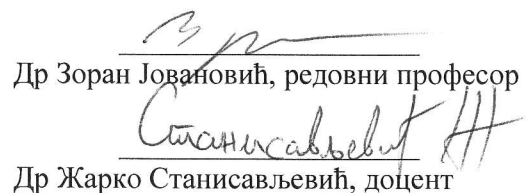 Др Зоран Јовановић, редовни професор
Станисављевић
Др Жарко Станисављевић, доцент